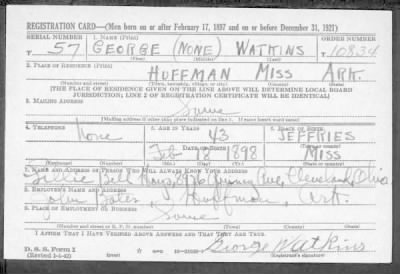 REGISTRATION CARD—(Men born on or after February 17, 1897 and on or before December 31, 1921)
SERIAL NUMBER 1. NAME (Print) ORDER NUMBER
T 57 GEORGE (NONE) WATKINS T 10834
(First) (Middle) (Last)
2. PLACE OF RESIDENCE (Print)
HUFFMAN MISS ARK.
(Number and street) (Town, township, village, or city) (County) (State)
[THE PLACE OF RESIDENCE GIVEN ON THE LINE ABOVE WILL DETERMINE LOCAL BOARD
JURISDICTION; LINE 2 OF REGISTRATION CERTIFICATE WILL BE IDENTICAL]
3. MAILING ADDRESS
Same
[Mailing address if other than place indicated on line 2. If same insert word same]
4. TELEPHONE 5. AGE IN YEARS 6. PLACE OF BIRTH
None 43 JEFFRIES
DATE OF BIRTH (Town or county)
Feb 18 1898 MISS
(Exchange) (Number) (Mo.) (Day) (Yr.) (State or country)
7. NAME AND ADDRESS OF PERSON WHO WILL ALWAYS KNOW YOUR ADDRESS
Bell Ave, Cleveland, Ohio
8. EMPLOYER'S NAME AND ADDRESS
John Huffman, Ark.
9. PLACE OF EMPLOYMENT OR BUSINESS
Same
(Number and street or R. F. D. number) (Town) (County) (State)
I AFFIRM THAT I HAVE VERIFIED ABOVE ANSWERS AND THAT THEY ARE TRUE.
D. S. S. Form 1
(Revised 1-1-42) (over) George Watkins